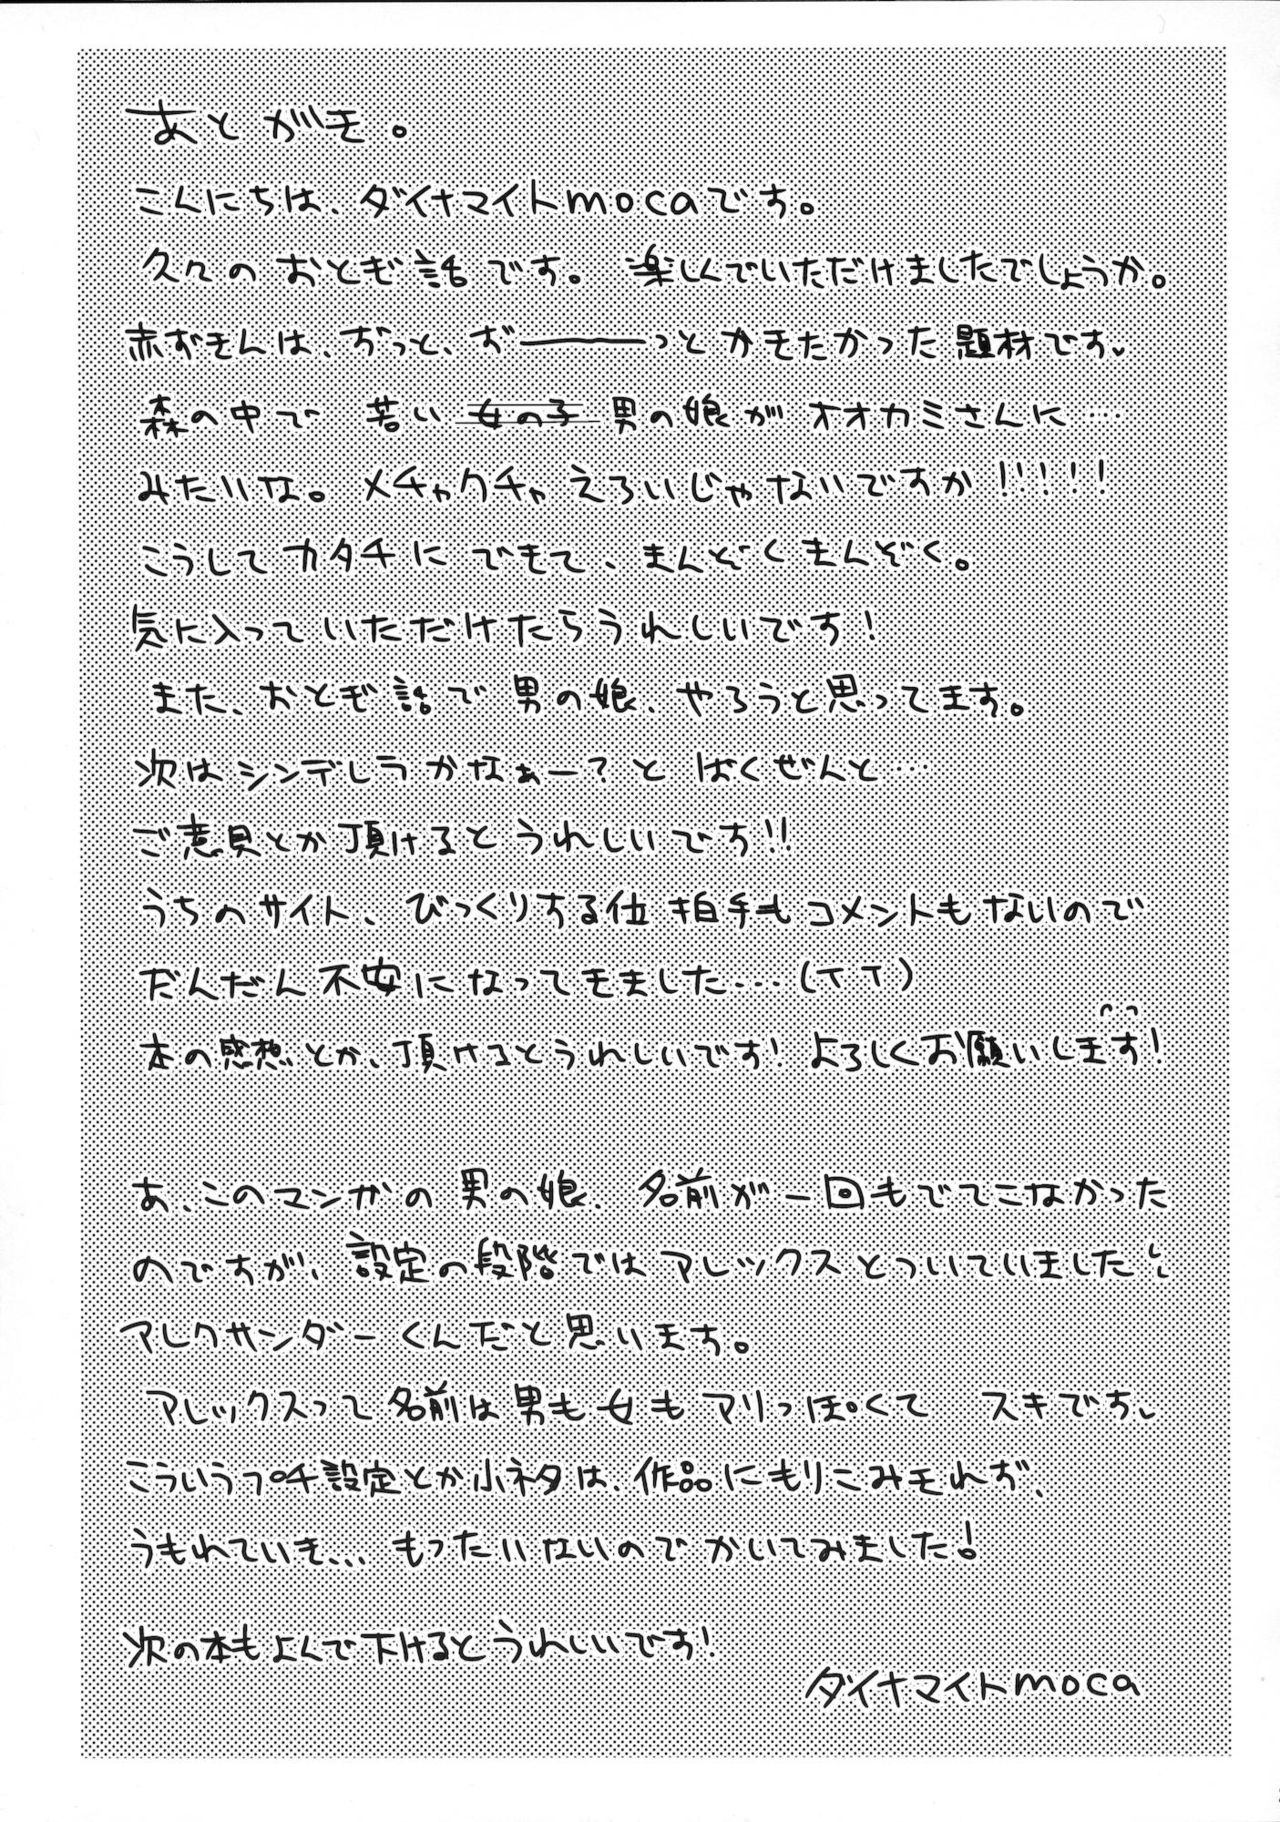 あとがき。
こんにちは、ダイナマイトmocaです。
久々のおとぎ話です。 楽しんでいただけましたでしょうか。
赤ずきんは、ずっと、ず———っとかきたかった題材です。
森の中で 若い 女の子 男の娘が オオカミさんに…
みたいな。メチャクチャえろいじゃないですか!!!!!
こうしてカタチにできて、まんぞくまんぞく。
気に入っていただけたらうれしいです!
また、おとぎ話で男の娘、やろうと思ってます。
次はシンデレラかなぁー?と ばくぜんと…
ご意見とか頂けるとうれしいです!!
うちのサイト、びっくりする位拍手もコメントもないので
だんだん不安になってきました…(TT)
本の感想とか、頂けるとうれしいです! よろしくお願いします!
あ、このマンガの男の娘、名前が一回もでてこなかった
のですが、設定の段階ではアレックスとついていました。
アレクサンダーくんだと思います。
アレックスって名前は男も女もアリっぽくて スキです。
こういうプチ設定とか小ネタは、作品にもりこみきれず、
うもれていき… もったいないのでかいてみました!
次の本もよんで下けるとうれしいです!
ダイナマイトmoca